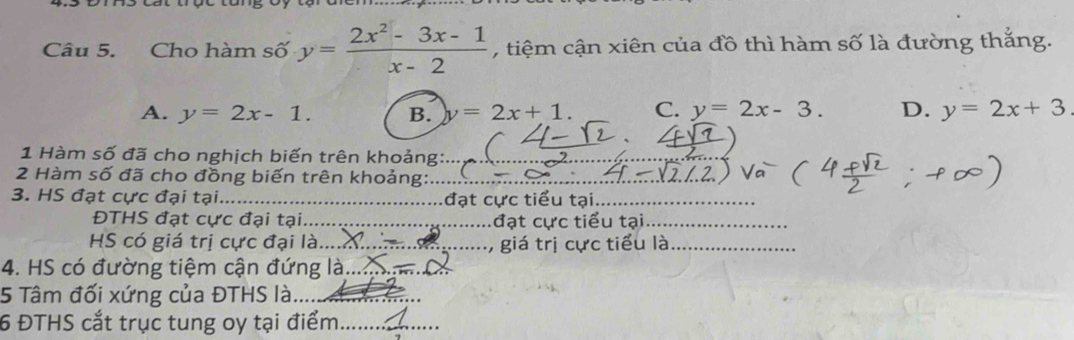 Câu 5. Cho hàm số y = \frac{2x² - 3x - 1}{x - 2}, tiệm cận xiên của đồ thì hàm số là đường thẳng.
A. y = 2x - 1. B. y = 2x + 1. C. y = 2x - 3. D. y = 2x + 3.
1 Hàm số đã cho nghịch biến trên khoảng:... ( \frac{4-√2}{2} ; \frac{4+√2}{2} )
2 Hàm số đã cho đồng biến trên khoảng:... ( -∞ ; 4-√2 / 2 ) và ( \frac{4+√2}{2} ; +∞ )
3. HS đạt cực đại tại...đạt cực tiểu tại...
ĐTHS đạt cực đại tại...đạt cực tiểu tại...
HS có giá trị cực đại là... X = ..., giá trị cực tiểu là...
4. HS có đường tiệm cận đứng là... X = 2
5 Tâm đối xứng của ĐTHS là...
6 ĐTHS cắt trục tung oy tại điểm... 1 ...